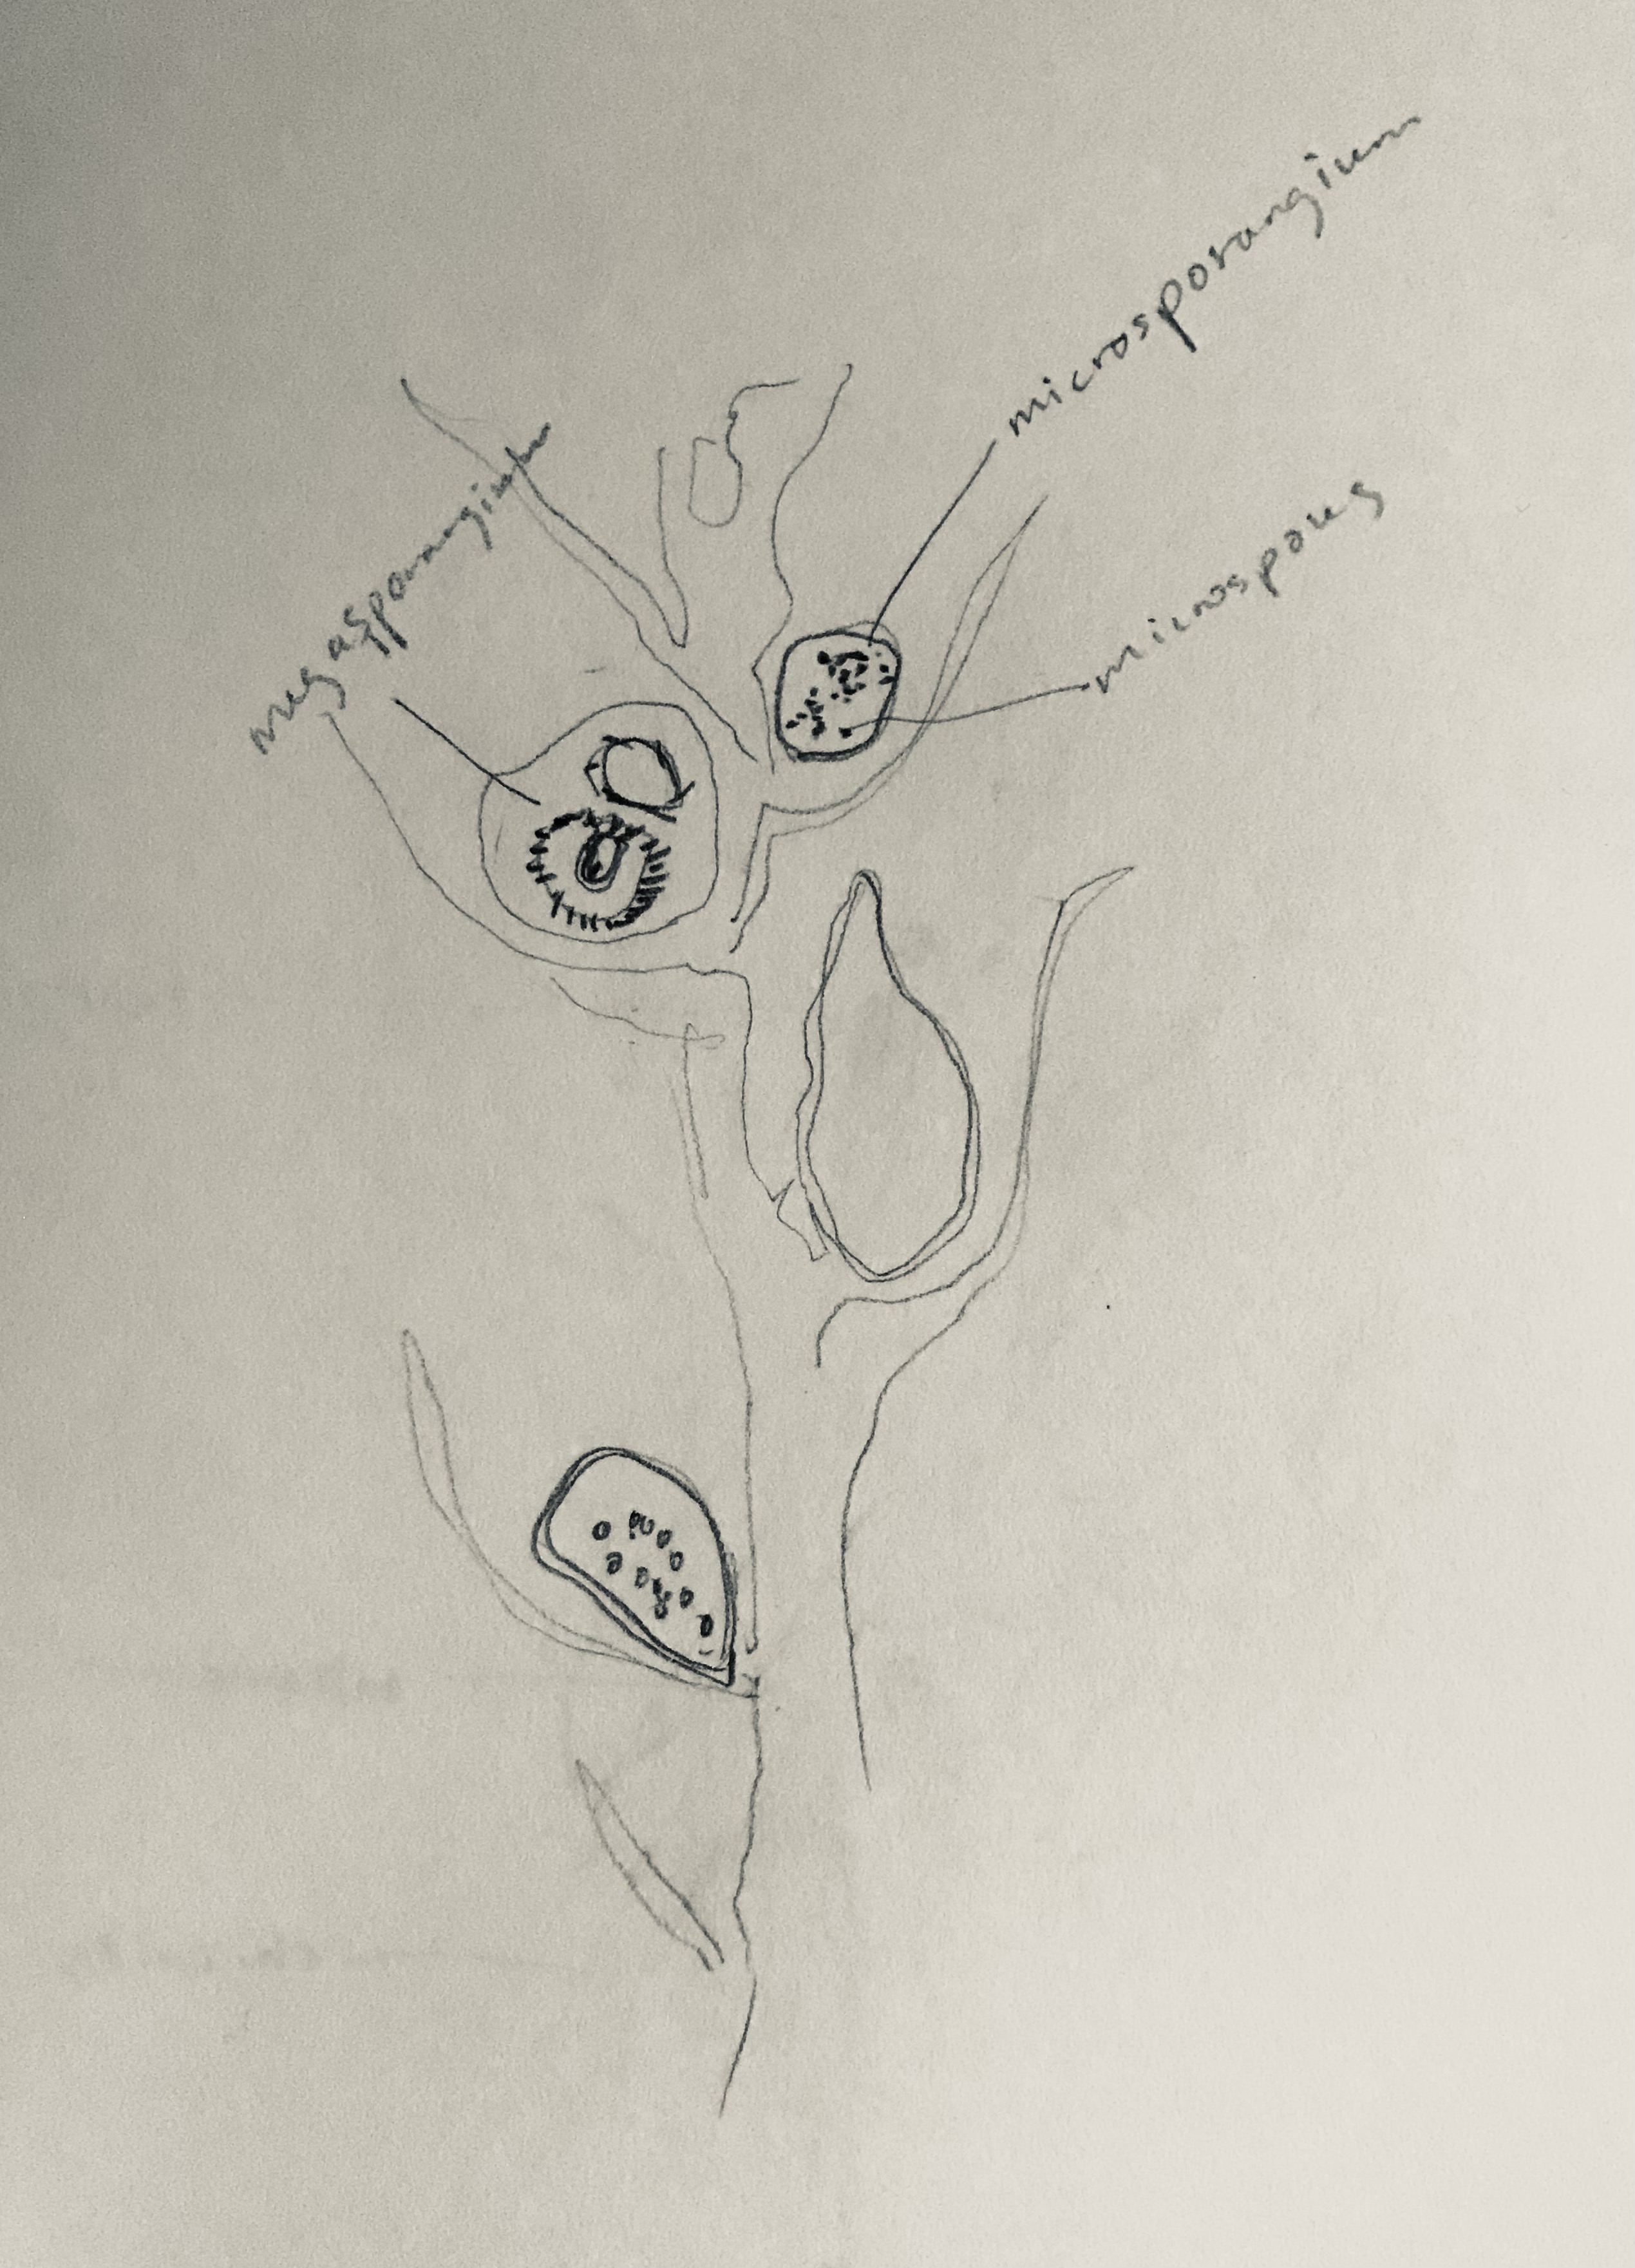 microsporangium
megasporangium
microspores